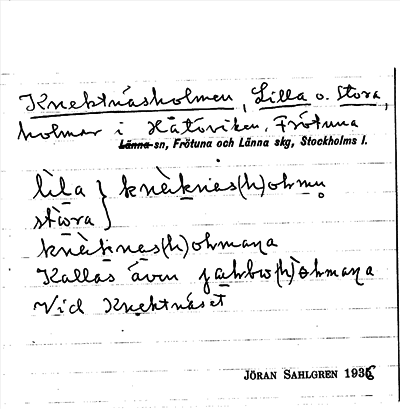 Knektnäsholmen, Lilla o. Stora,
holmar i Håtöviken, Frötuna
Länna sn, Frötuna och Länna skg, Stockholms l.
lìla } knèknes(h)olmn̥
stòra
knèknes(h)olmana
Kallas även
Vid Knektnäset
JÖRAN SAHLGREN 1936